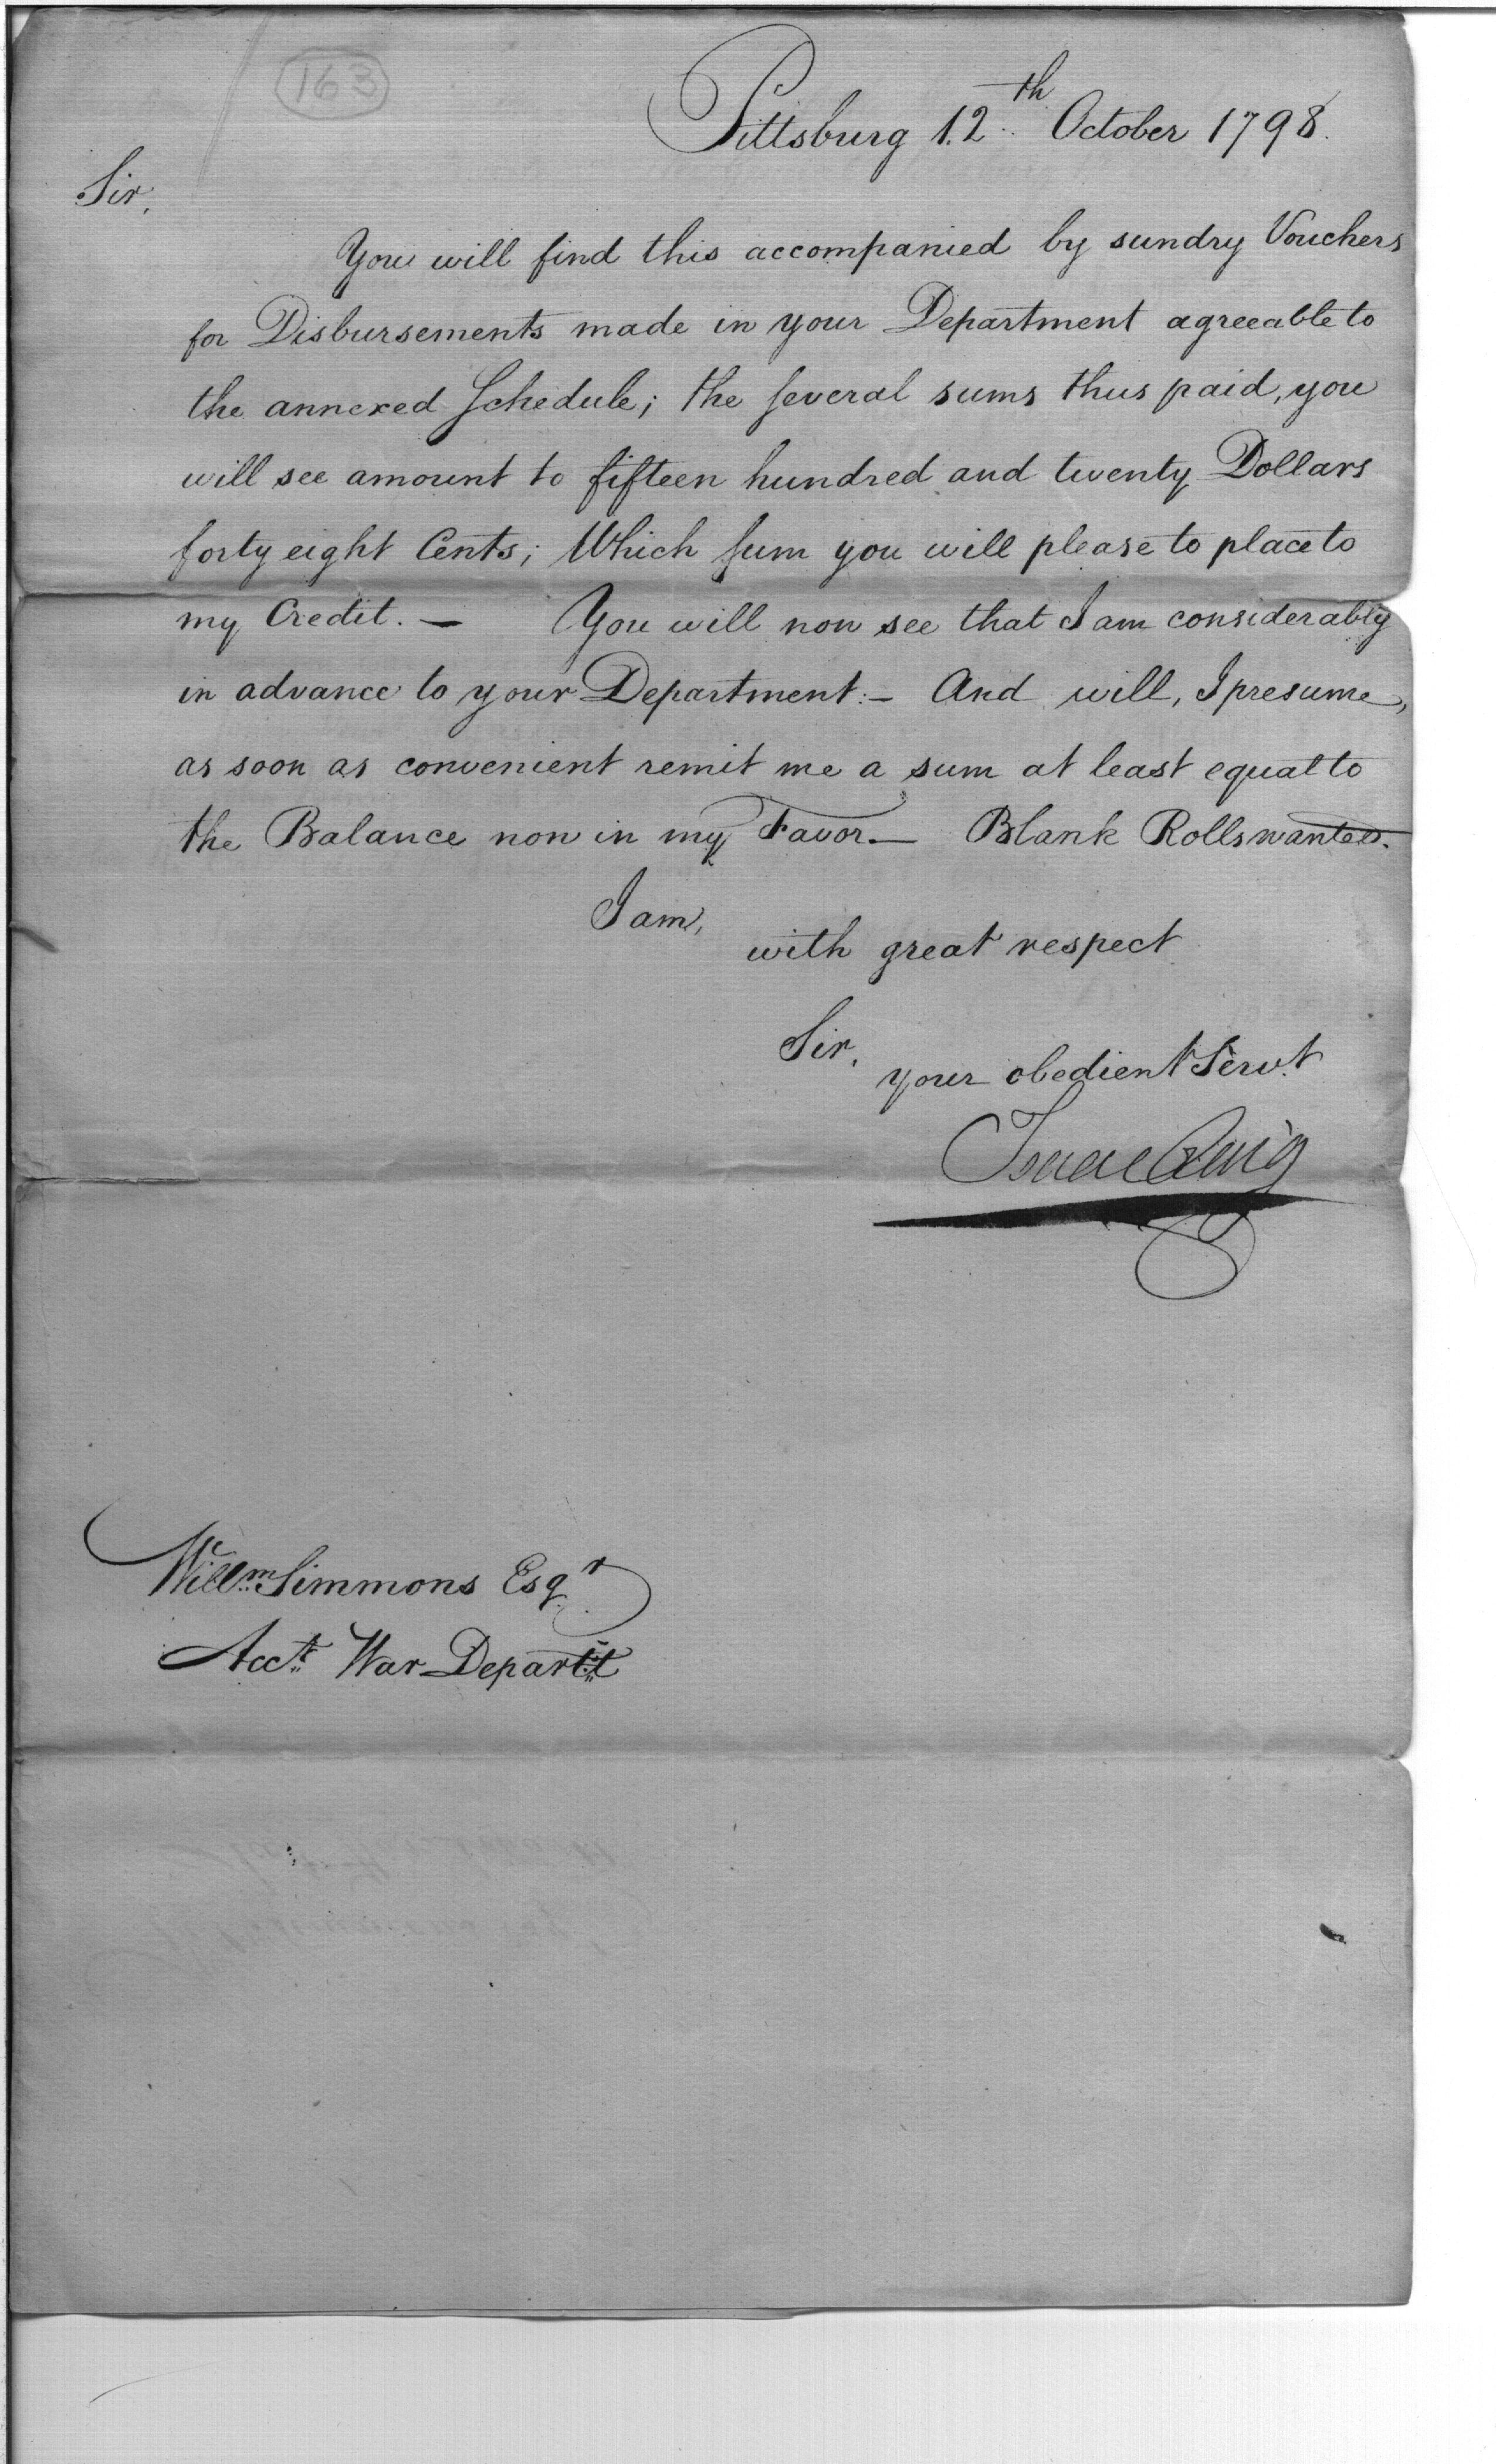 163
Pittsburg 12th October 1798.
Sir,
You will find this accompanied by sundry Vouchers
for Disbursements made in your Department agreeable to
the annexed Schedule; the several sums thus paid, you
will see amount to fifteen hundred and twenty Dollars
forty eight Cents; Which sum you will please to place to
my Credit. — You will now see that I am considerably
in advance to your Department:— And will, I presume,
as soon as convenient remit me a sum at least equal to
the Balance now in my Favor — Blank Rolls wanted.
I am,
with great respect
Sir,
your obedient Servt
Isaac Craig
Willm Simmons Esqr
Acct War Departt